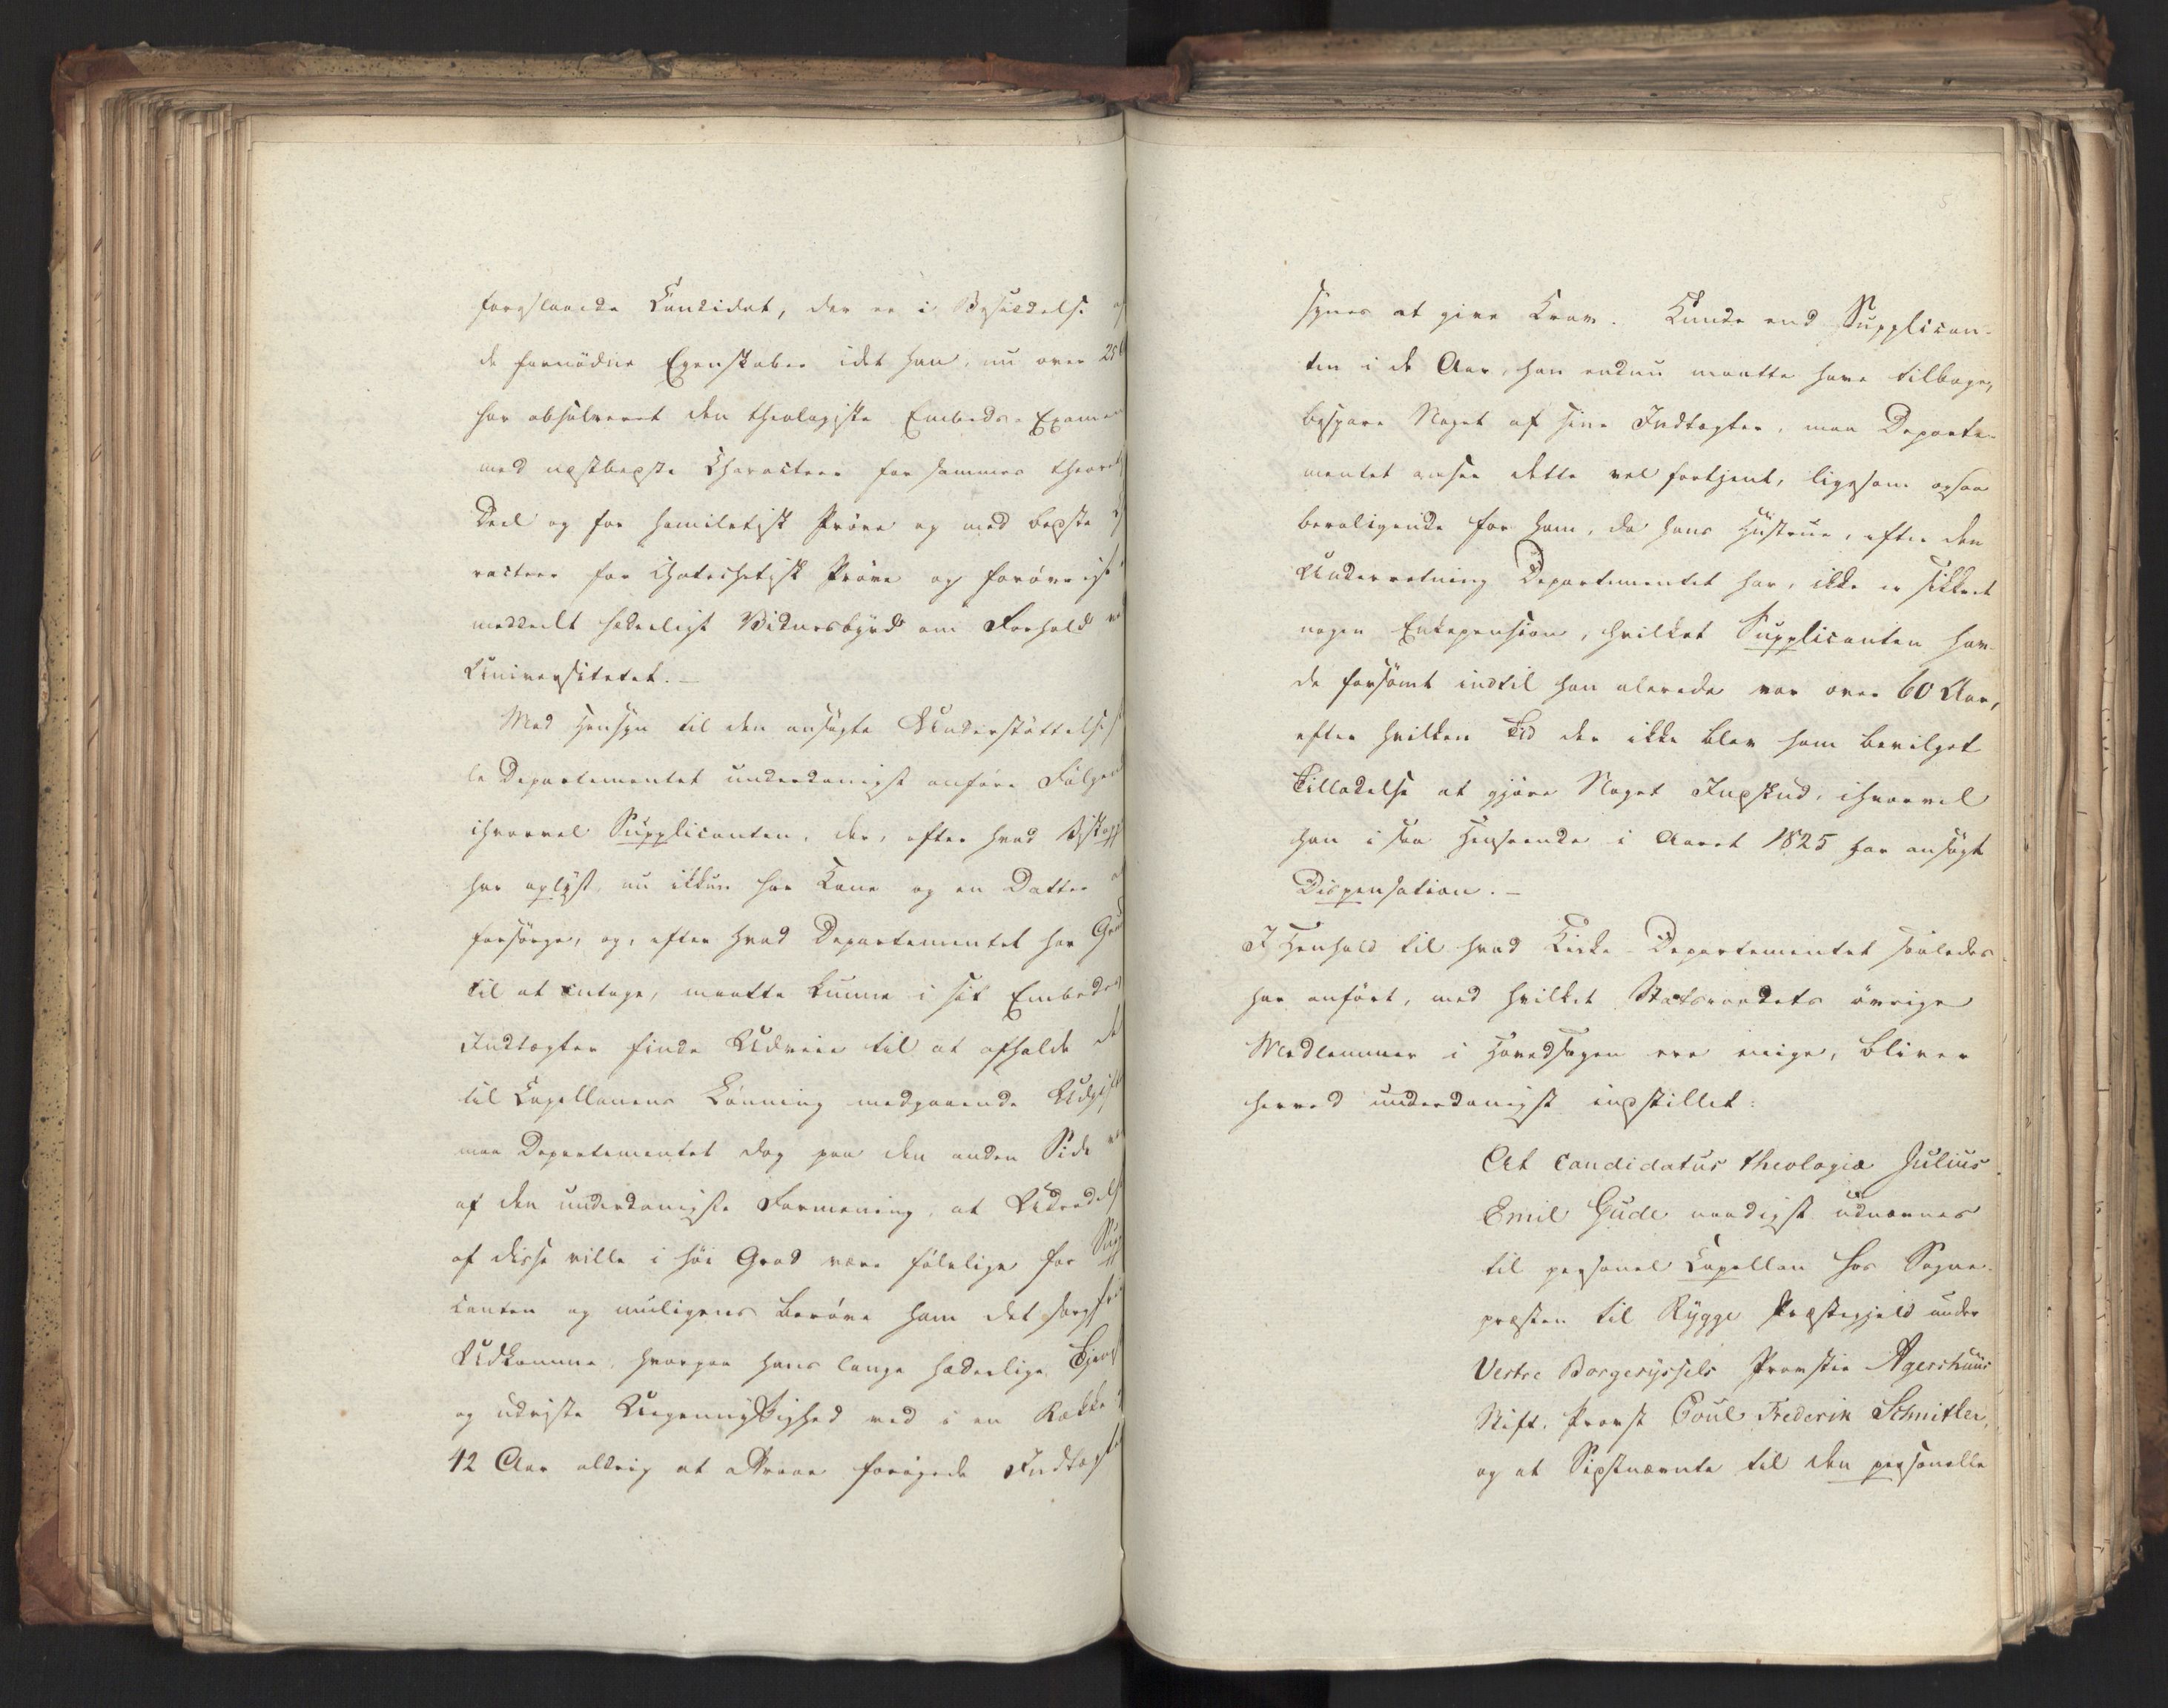 foreslaaede Candidat, der er i Besiddelse
de fornødne Egenskaber idet han, nu over 25
har absolveret den theologiske Embeds-Examen
med næstbedste Characteer for sammes theoret
Deel og for homiletisk Prøve og med bedste
racteer for chatechetisk Prøve og forøvrigt
meddeelt hæderligt Vidnesbyrd om Forhold
Universitetet. _
Med Hensyn til den ansøgte Understøttelse
le Departementet underdanigst anføre Følgende
ihvorvel Supplicanten, der, efter hvad Biskopp
har oplyst, nu ikkun har Kone og en Datter
forsørge, og, efter hvad Departementet har
til at antage, maatte kunne i sit Embedes
Indtægter finde Udveie til at afholde
til Capellanens Lønning medgaaende
maa Departementet dog paa den anden Side
af den underdanigste Formening, at Udredelse
af disse ville i høi Grad være følelige for Sup
canten og muligens berøve ham det sorgfri
Udkomme, hvorpaa hans lange hæderlige Tjenes
og udviste Uegennyttighed ved i en Række
42 Aar aldrig at attraae forøgede Indtægt
synes at give Krav. Kunde end Supplican-
ten i de Aar, han endnu maatte have tilbage,
bespare Noget af sine Indtægter, maa Departe-
mentet ansee dette vel fortjent, ligesom ogsaa
beroligende for ham, da hans Hustrue, efter den
Underretning Departementet har, ikke er sikkret
nogen Enkepension, hvilket Supplicanten hav-
de forsømt indtil han allerede var over 60 Aar,
efter hvilken Tid der ikke blev ham bevilget
Tilladelse at gjøre Noget Indskud, ihvorvel
han i saa Henseende i Aaret 1825 har ansøgt
Dispensation. _
I Henhold til hvad Kirke-Departementet saaledes
har anført, med hvilket Statsraadets øvrige
Medlemmer i Hovedsagen ere enige, bliver
herved underdanigst indstillet:
At Candidatus theologiæ Julius
Emil Gude naadigst udnævnes
til personel Capellan hos Sogne-
præsten til Rygge Præstegjeld under
Vestre Borgeryssels Provstie Agershuus
Stift, Provst Poul Frederik Schnitler,
og at Sidstnævnte til den personelle